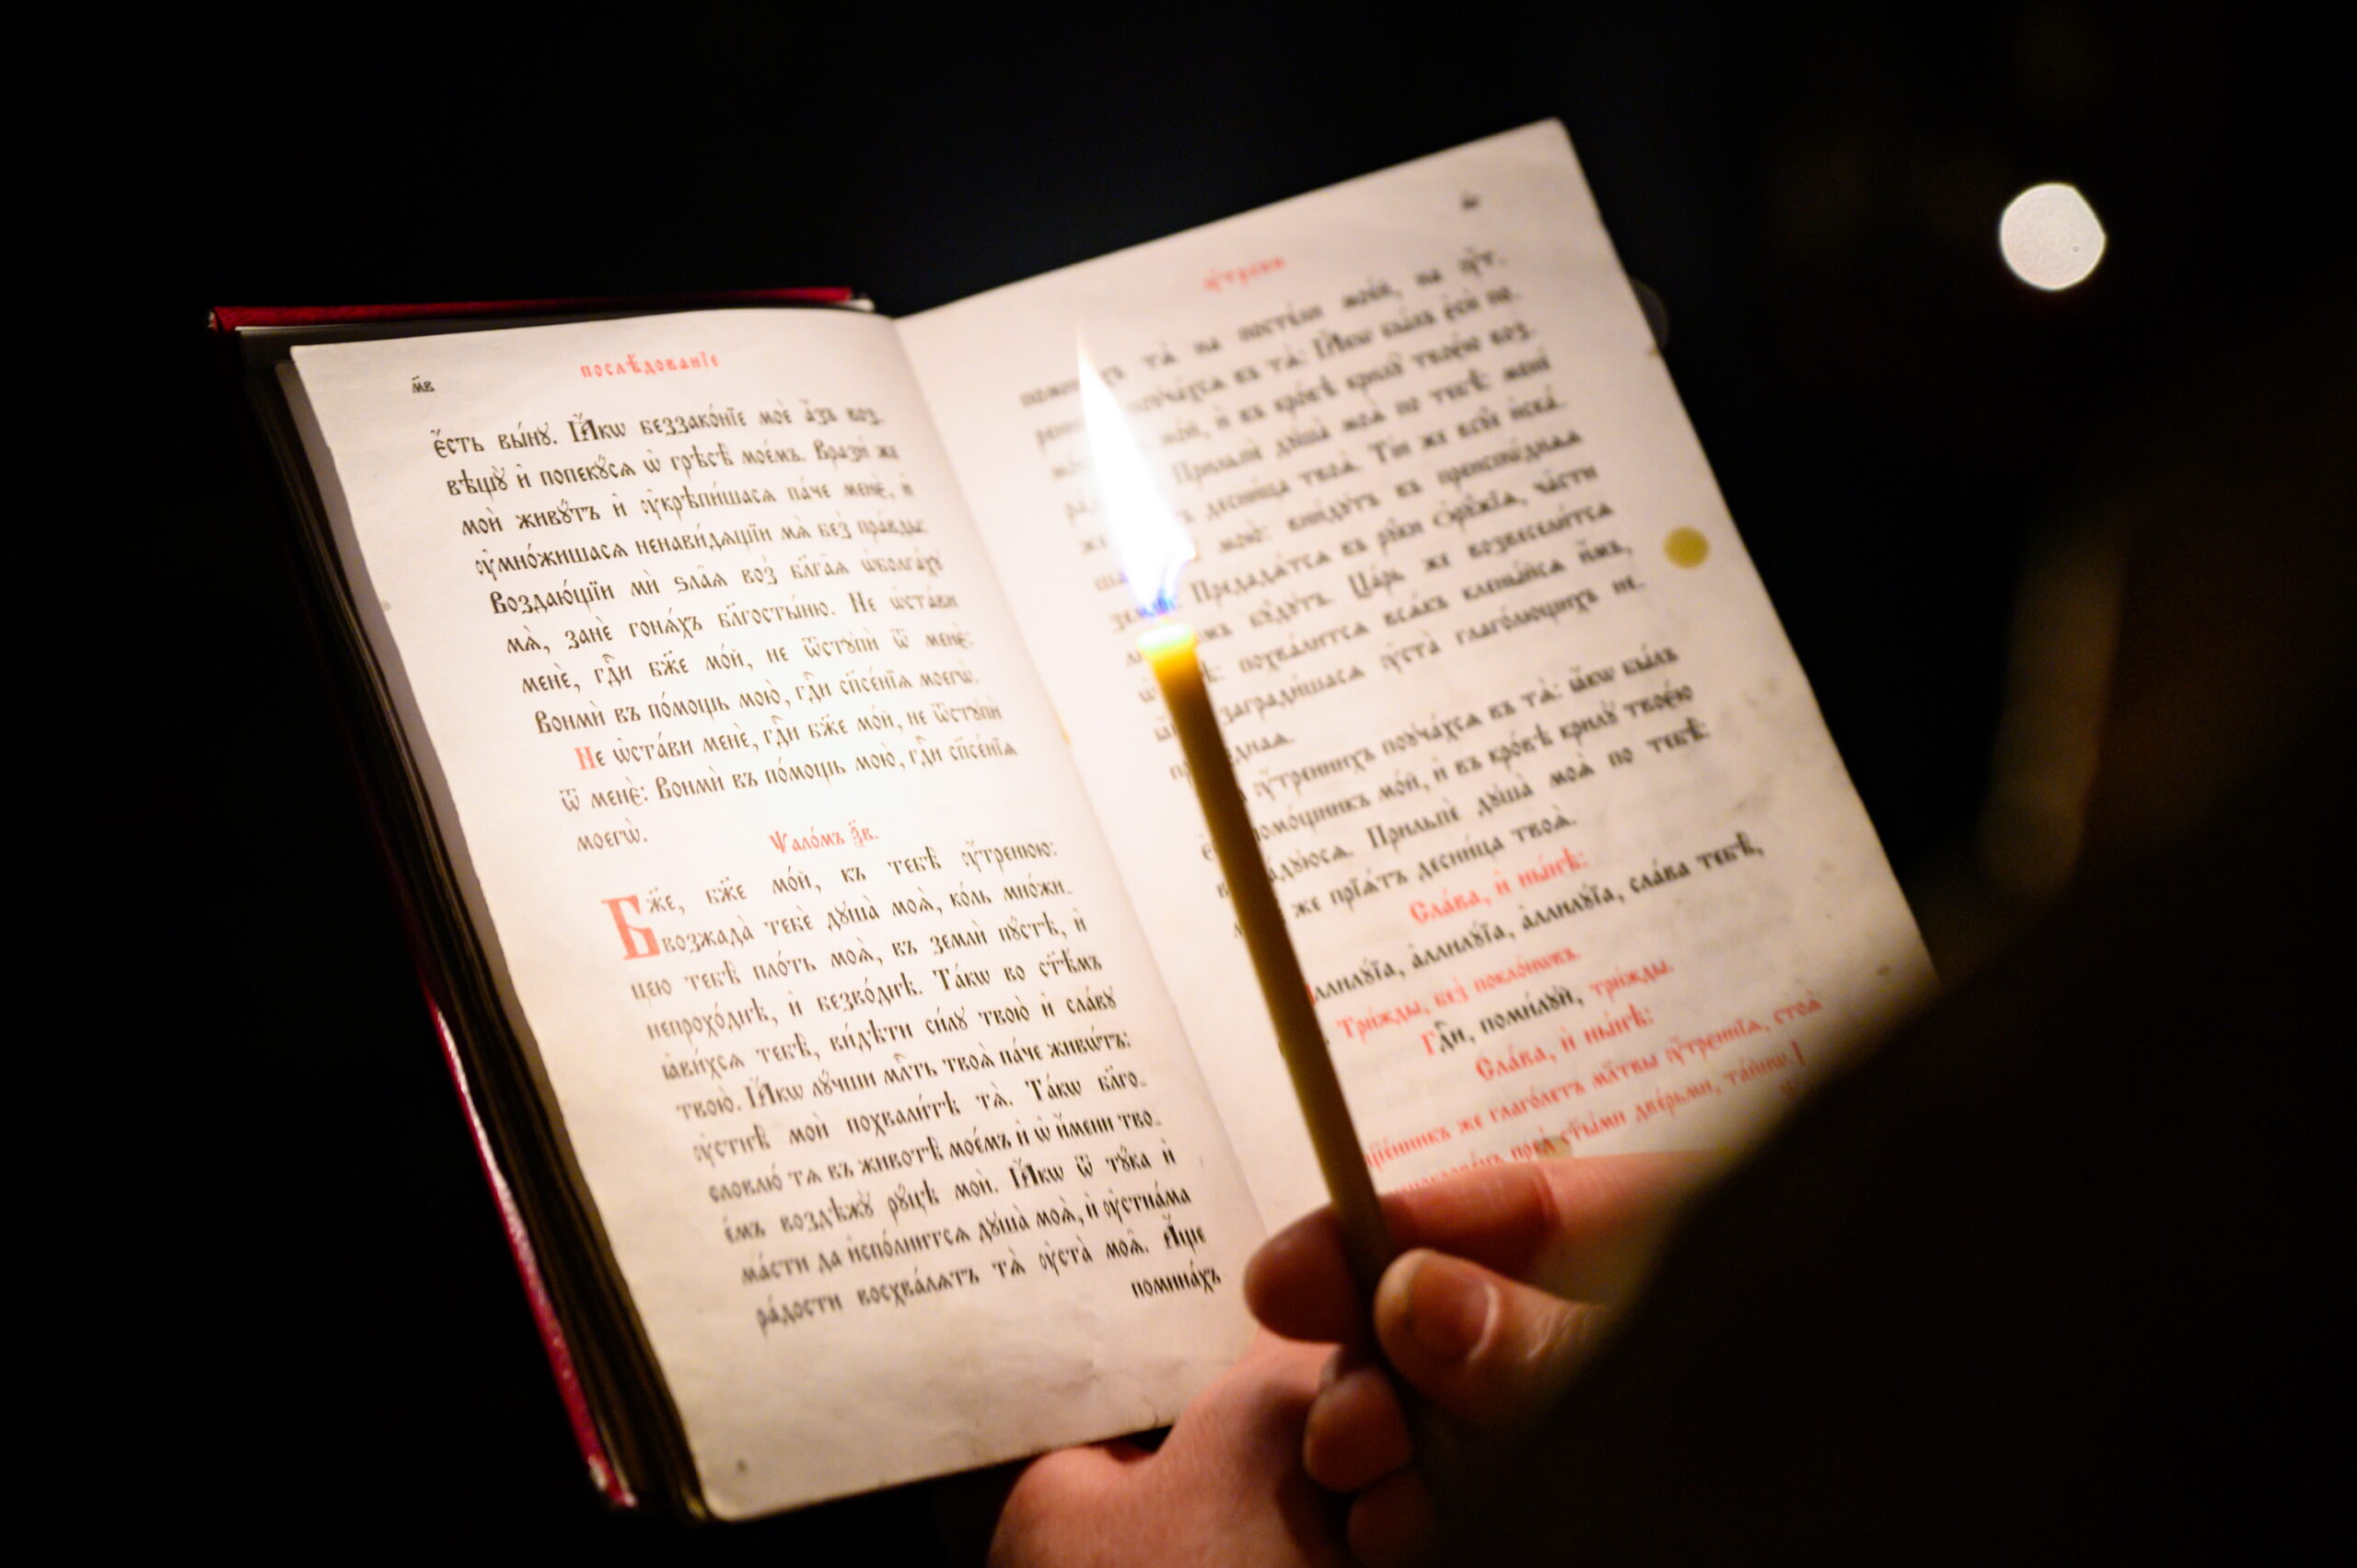 м҃в
послѣ́дованїе
є҆́сть вы́нꙋ. Ꙗ҆́кѡ беззако́нїе моѐ а҆́зъ воз-
вѣщꙋ̀ и҆ попекꙋ́сѧ ѡ҆ грѣсѣ̀ мое́мъ. Вразѝ же
моѝ живꙋ́тъ и҆ ᲂу҆крѣпи́шасѧ па́че менє̀, и҆
ᲂу҆мно́жишасѧ ненави́дѧщїи мѧ̀ без̾ пра́вды:
Воздаю́щїи мѝ ѕла̑ѧ воз̾ бл҃га̑ѧ ѡ҆болга́хꙋ
мѧ̀, занѐ гонѧ́хъ бл҃госты́ню. Не ѡ҆ста́ви
менѐ, гдⷭ҇и бж҃е мо́й, не ѿстꙋпѝ ѿ менє̀:
Вонмѝ въ по́мощь мою̀, гдⷭ҇и сп҃се́нїѧ моегѡ̀.
Не ѡ҆ста́ви менѐ, гдⷭ҇и бж҃е мо́й, не ѿстꙋпѝ
ѿ менє̀: Вонмѝ въ по́мощь мою̀, гдⷭ҇и сп҃се́нїѧ
моегѡ̀.
Ѱало́мъ ѯ҃в.
Бж҃е, бж҃е мо́й, къ тебѣ̀ ᲂу҆́тренюю:
возжада̀ тебѐ дꙋша̀ моѧ̀, ко́ль мно́жи-
цею тебѣ̀ пло́ть моѧ̀, въ землѝ пꙋ́стѣ, и҆
непрохо́днѣ, и҆ безво́днѣ. Та́кѡ во ст҃ѣ́мъ
ꙗ҆ви́хсѧ тебѣ̀, ви́дѣти си́лꙋ твою̀ и҆ сла́вꙋ
твою̀. Ꙗ҆́кѡ лꙋ́чши млⷭ҇ть твоѧ̀ па́че живѡ́тъ:
ᲂу҆стнѣ̀ моѝ похвали́тѣ тѧ̀. Та́кѡ бл҃го-
словлю́ тѧ въ животѣ̀ мое́мъ и҆ ѡ҆ и҆́мени тво-
е́мъ воздѣжꙋ̀ рꙋ́цѣ моѝ. Ꙗ҆́кѡ ѿ тꙋ́ка и҆
ма́сти да и҆спо́лнитсѧ дꙋша̀ моѧ̀, и҆ ᲂу҆стна́ма
ра́дости восхва́лѧтъ тѧ̀ ᲂу҆ста̀ моѧ̑. А҆́ще
помина́хъ
ᲂу҆́трени
тѧ̀ на посте́ли мое́й, на ᲂу҆́т-
поꙋча́хсѧ въ тѧ̀: Ꙗ҆́кѡ бы́лъ є҆сѝ по-
мо́й, и҆ въ кро́вѣ крилꙋ̀ твоє́ю воз-
Прильпѐ дꙋша̀ моѧ̀ по тебѣ̀: менѐ
десни́ца твоѧ̀. Ті́и же всꙋ́е и҆ска́-
мою̀: вни́дꙋтъ въ преиспѡ́днѧѧ
Предадѧ́тсѧ въ рꙋ́ки ѻ҆рꙋ́жїѧ, ча̑сти
бꙋ́дꙋтъ. Ца́рь же возвесели́тсѧ
похва́литсѧ всѧ́къ клены́йсѧ и҆́мъ,
заградⷭи́шасѧ ᲂу҆ста̀ глаго́лющихъ не-
ᲂу҆́тренних поꙋча́хсѧ въ тѧ̀: ꙗ҆́кѡ бы́лъ
мо́й, и҆ въ кро́вѣ крилꙋ̀ твоє́ю
Прильпѐ дꙋша̀ моѧ̀ по тебѣ̀:
же прїѧ́тъ десни́ца твоѧ̀.
Сла́ва, и҆ ны́нѣ:
а҆ллилꙋ́їа, а҆ллилꙋ́їа, сла́ва тебѣ̀,
Три́жды, без̾ покло́нѡвъ.
Гдⷭ҇и, поми́лꙋй, три́жды.
Сла́ва, и҆ ны́нѣ:
же глаго́летъ мл҃твы ᲂу҆́трєннїѧ, стоѧ̀
пред̾ ст҃ы́ми две́рьми, та́йнѡ.]